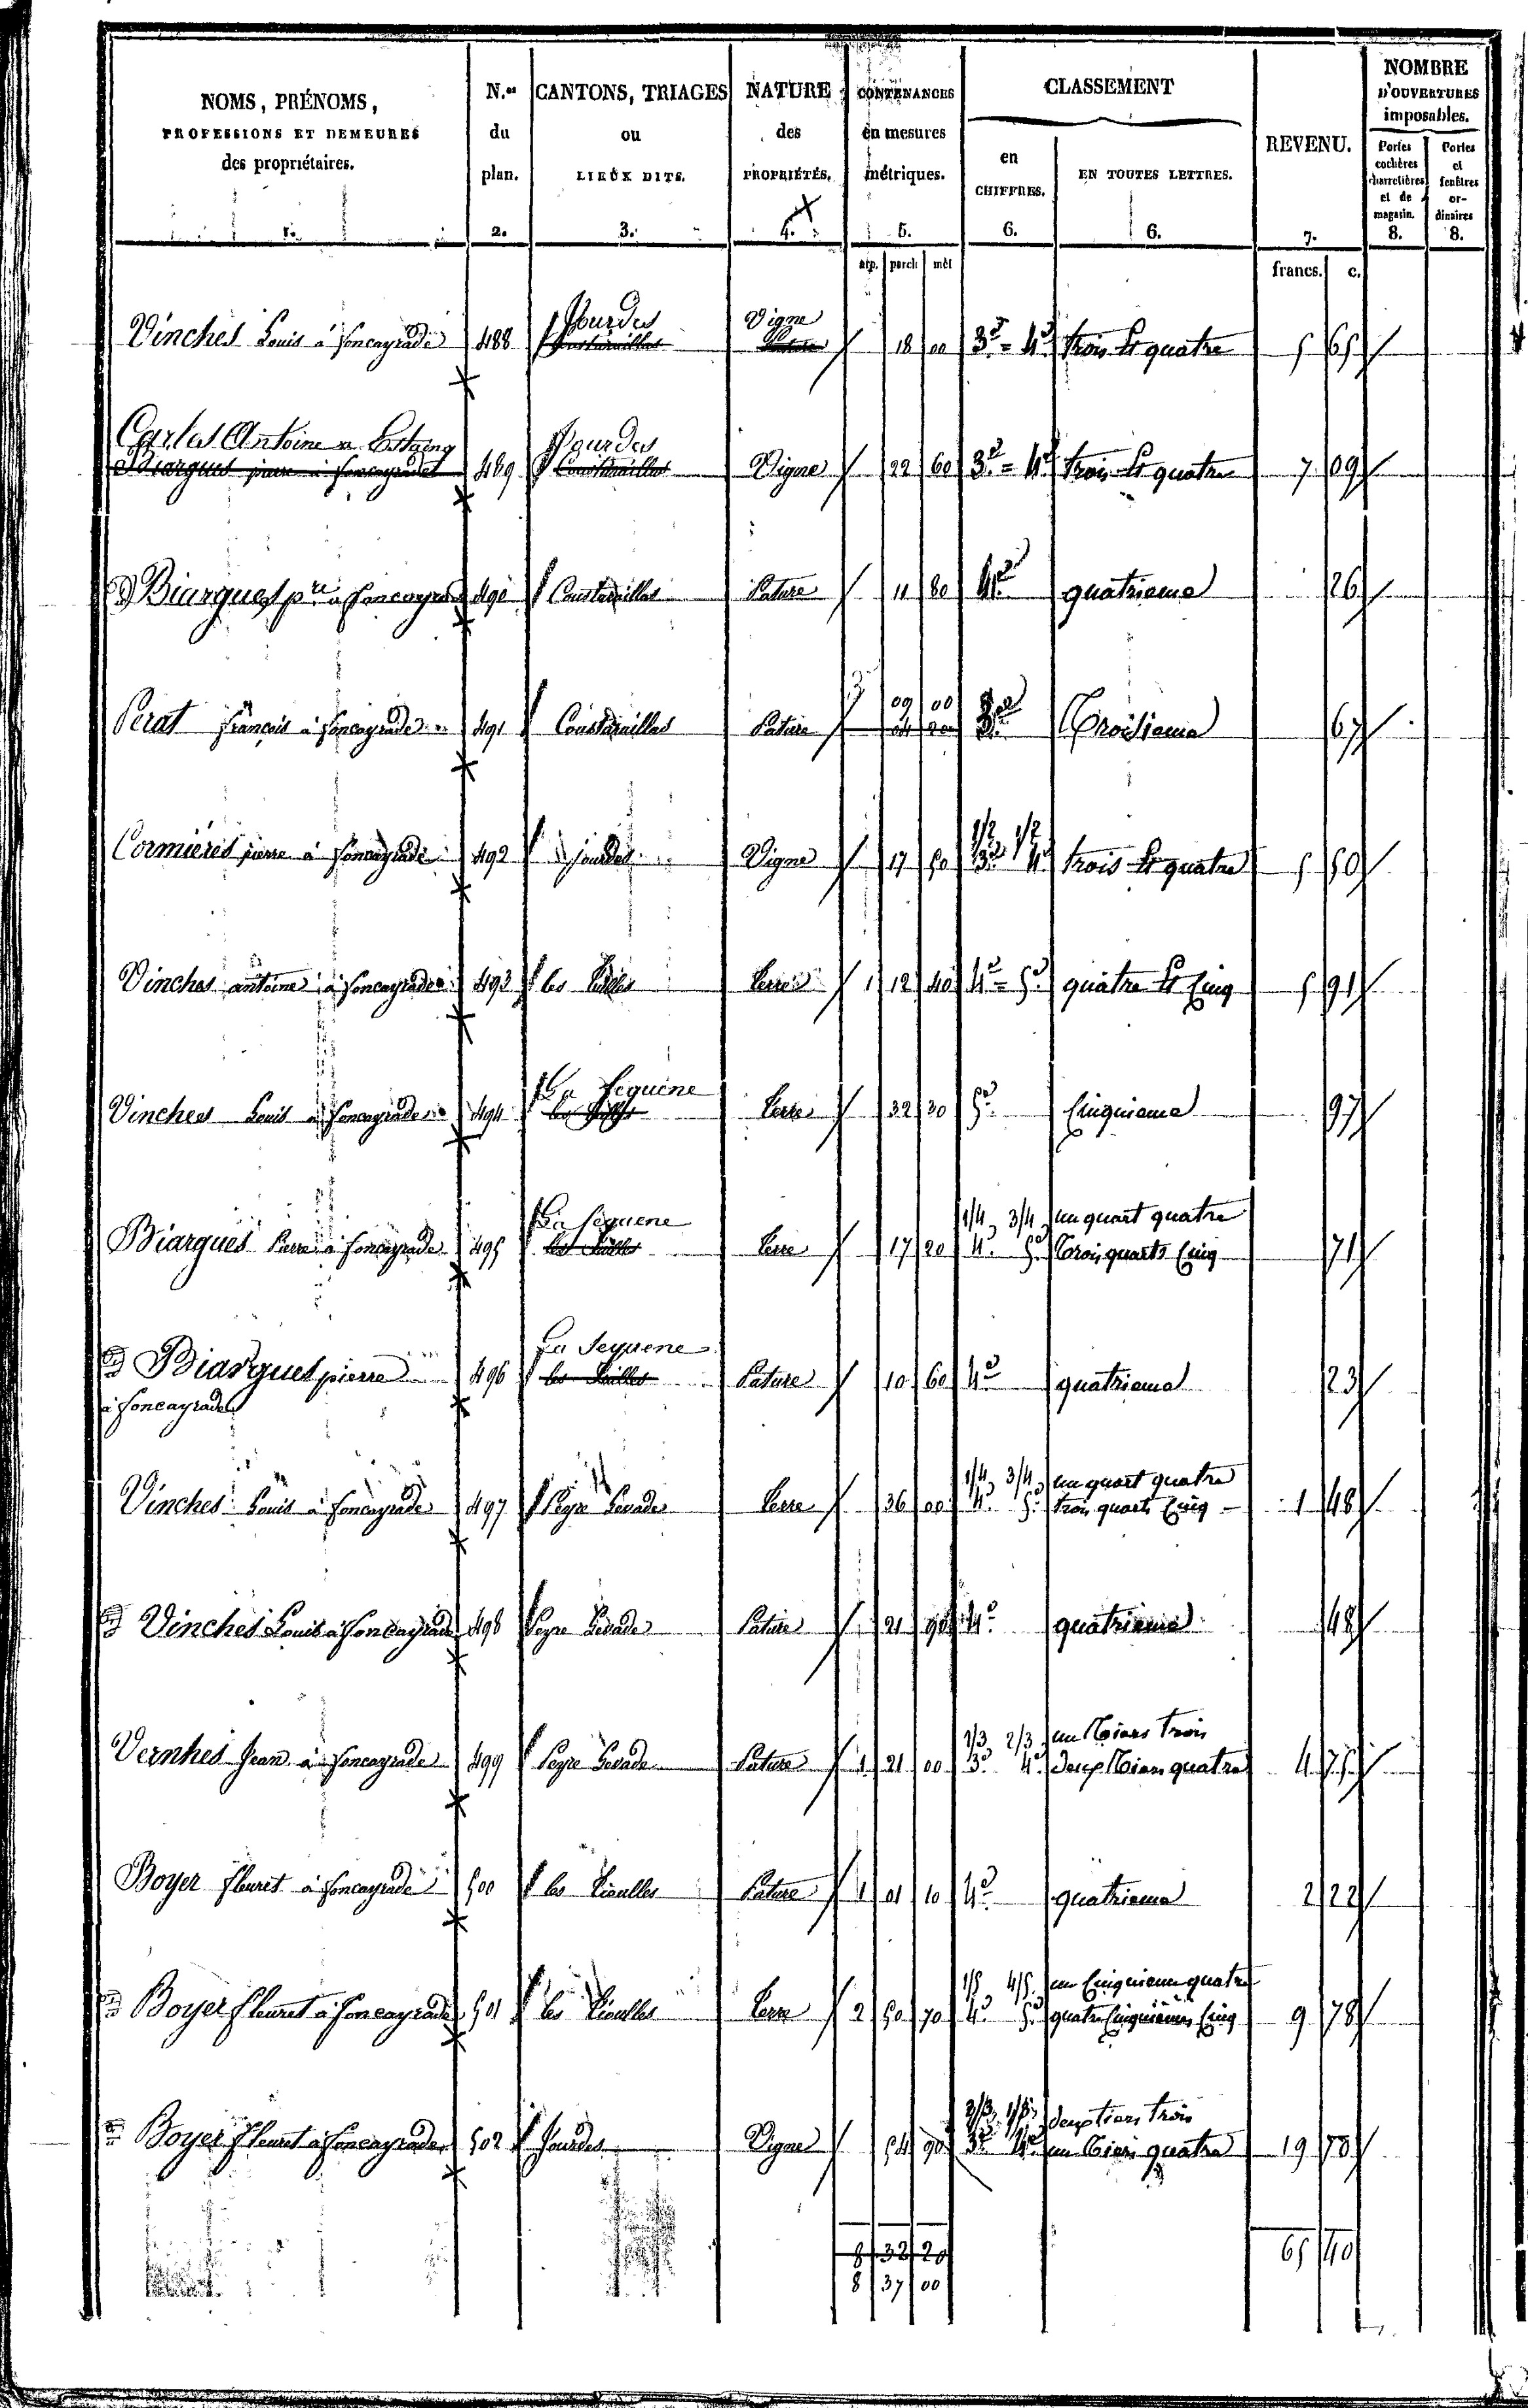 NOMS, PRÉNOMS, PROFESSIONS ET DEMEURES des propriétaires. 1.
N.os du plan. 2.
CANTONS, TRIAGES ou LIEUX DITS. 3.
NATURE des PROPRIÉTÉS. 4.
CONTENANCES en mesures métriques. 5.
CLASSEMENT
en CHIFFRES. 6.
EN TOUTES LETTRES. 6.
REVENU. 7.
NOMBRE D'OUVERTURES imposables.
Portes cochères charretières et de magasin. 8.
Portes et fenêtres ordinaires 8.
arp. perch mèt francs. c.
Vinches Louis à foncayrade 488 Jourdes Vigne 18 00 3e = 4e trois et quatre 5 65
Carles Antoine
Biargues pierre à foncayrade 489 Jourdes Constarailles Vigne 22 60 3e = 4e trois et quatre 7 09
d Biargues pre à foncayrade 490 Constarailles Pature 11 80 4e quatrieme 26
09 00
Perat françois à foncayrade 491 Constarailles Pature 3e Troisieme 67
1/2 1/2
Cormières pierre à foncayrade 492 Jourdes Vigne 17 50 3e 4e trois et quatre 5 50
Vinches antoine à foncayrade 493 les Terre 1 12 40 4e = 5e quatre et Cinq 5 91
La Sequène
Vinches Louis à foncayrade 494 Terre 32 30 5e Cinquieme 97
La Sequene 1/4 3/4 un quart quatre
Biargues Pierre à foncayrade 495 Terre 17 20 4e 5e Trois quarts Cinq 71
La Sequene
d Biargues pierre 496 Pature 10 60 4e quatrieme 23
à foncayrade
1/4 3/4 un quart quatre
Vinches Louis à foncayrade 497 Peyre Levade Terre 36 00 4e 5e trois quarts Cinq 1 48
d Vinches Louis à foncayrade 498 Peyre Levade Pature 21 90 4e quatrieme 48
1/3 2/3 un Tiers trois
Vernhes Jean à foncayrade 499 Peyre Levade Pature 1 21 00 3e 4e Deux Tiers quatre 4 75
Boyer fleuret à foncayrade 500 les Pature 1 01 10 4e quatrieme 2 22
1/5 4/5 un Cinquieme quatre
d Boyer fleuret à foncayrade 501 les Terre 2 50 70 4e 5e quatre Cinquièmes Cinq 9 78
2/3 1/3 deux tiers trois
d Boyer fleuret à foncayrade 502 Jourdes Vigne 54 90 3e 4e un Tiers quatre 19 70
8 32 20 65 40
8 37 00